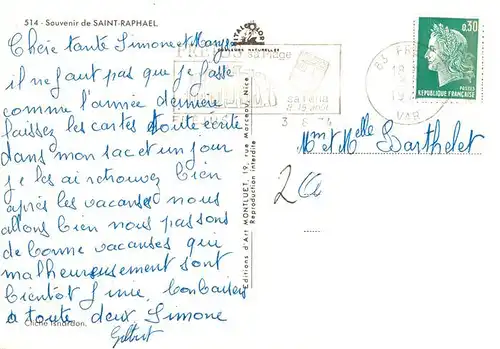 514 - Souvenir de SAINT-RAPHAEL
Chère tante Simone et
il ne faut pas que je fasse
comme l'année dernière
laisser les cartes toute écrite
dans mon sac et un jour
je les ai retrouvez bien
après les vacances nous
allons bien nous passons
de bonne vacances qui
malheureusement sont
bientôt finie, bon baisers
a toute deux Simone
Gilbert
Cliché Isnardon,
COULEURS NATURELLES
sa Plage
3 - 8 - 74
83 FR
VAR
0,30
POSTES
REPUBLIQUE FRANÇAISE
Mme et Melle Barthelet
Editions d'Art MONTLUET, 19, rue Marceau, Nice
Reproduction interdite